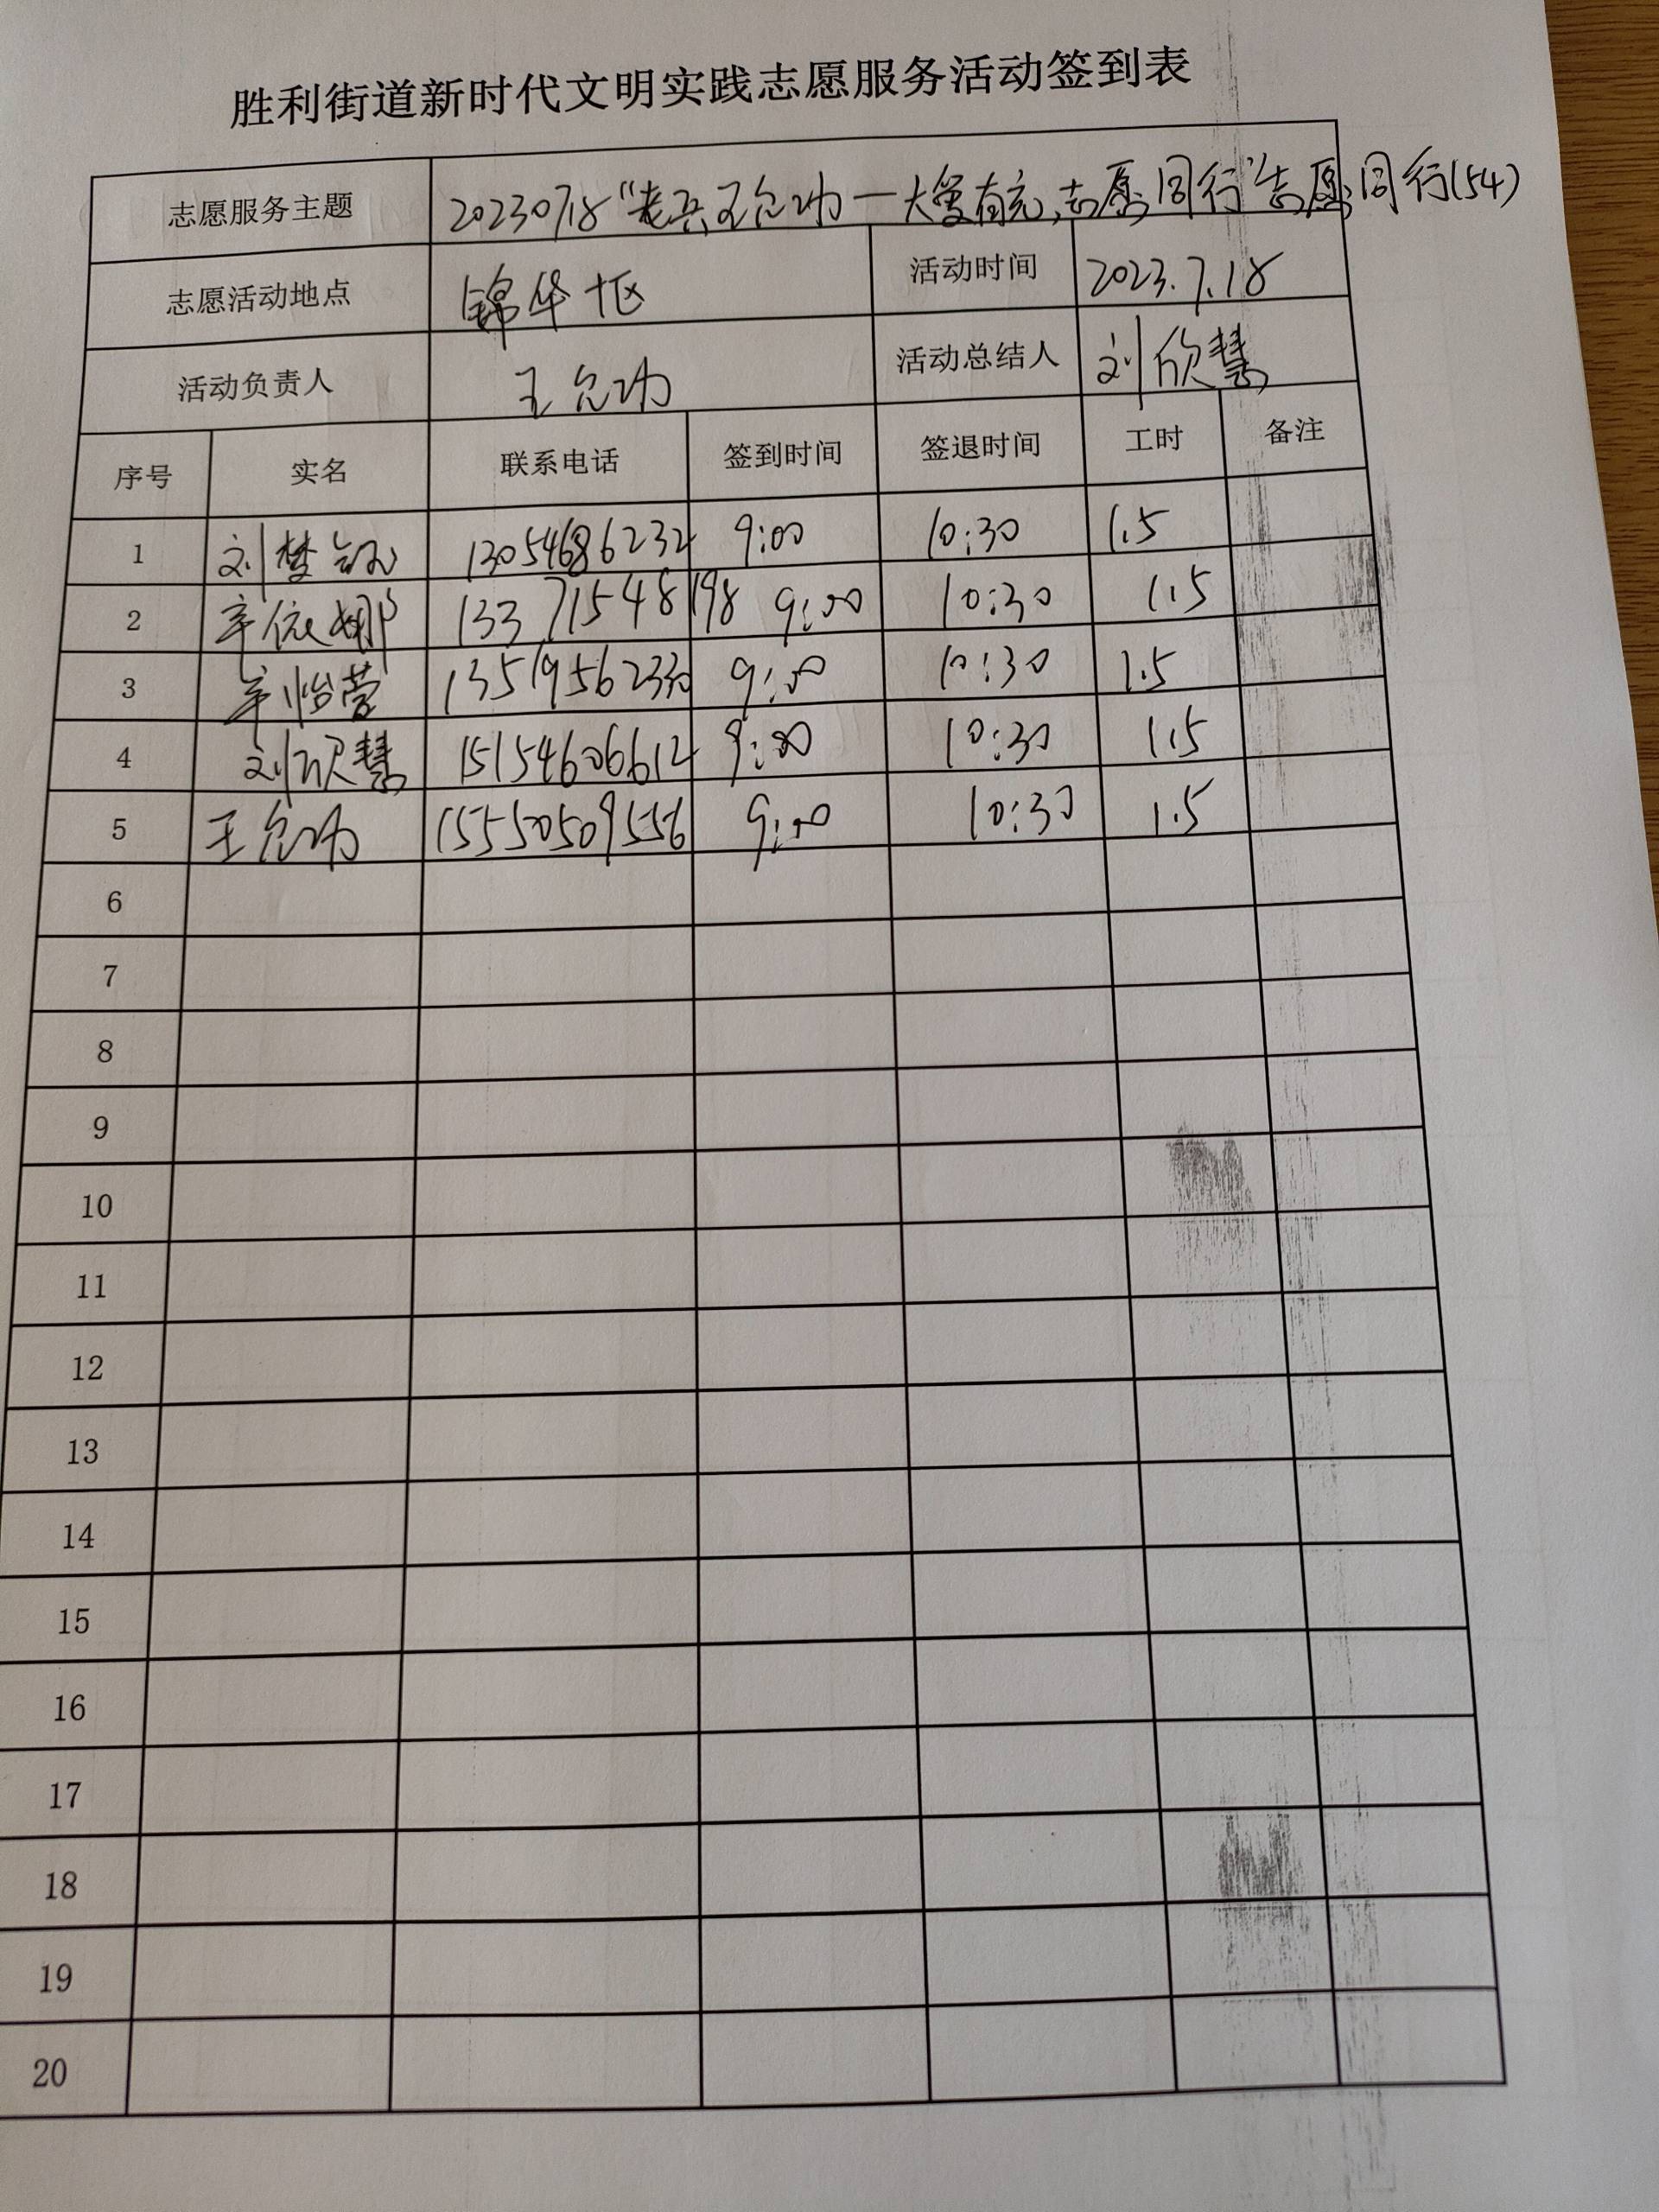 胜利街道新时代文明实践志愿服务活动签到表
志愿服务主题 20230718“老兵王允功一大爱有克,志愿同行”志愿同行(54)
志愿活动地点 锦华十区 活动时间 2023.7.18
活动负责人 王允功 活动总结人 刘欣慧
序号 实名 联系电话 签到时间 签退时间 工时 备注
1 刘梦 13054686232 9:00 10:30 1.5
2 辛依娜 13371548198 9:00 10:30 1.5
3 辛怡萱 9:00 10:30 1.5
4 刘欣慧 15154606612 9:00 10:30 1.5
5 王允功 15550509556 9:00 10:30 1.5
6
7
8
9
10
11
12
13
14
15
16
17
18
19
20